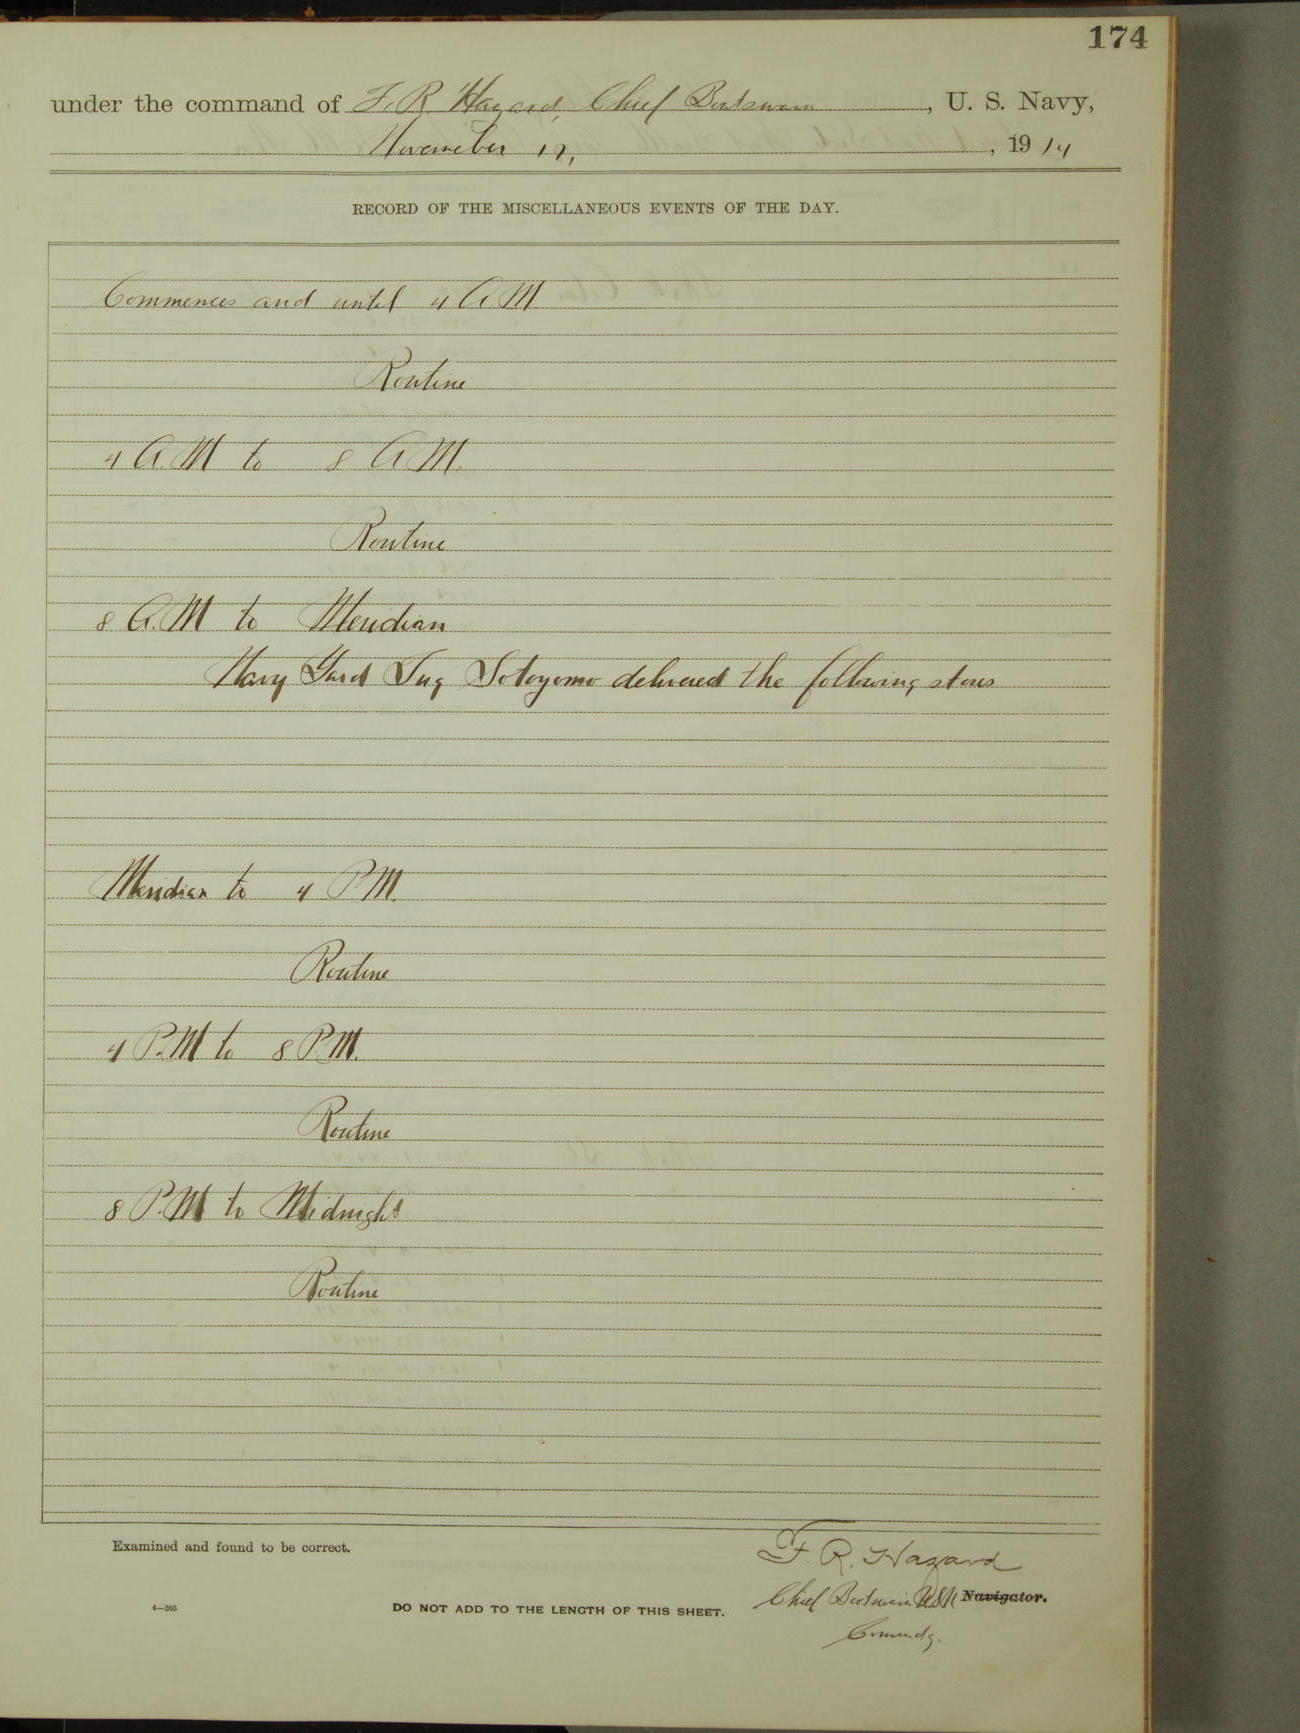 174
under the command of F. R. Hazard, Chief Boatswain, U. S. Navy,
November 17, , 1914
RECORD OF THE MISCELLANEOUS EVENTS OF THE DAY.
Commences and until 4 A.M.
Routine
4 A.M to 8 A.M.
Routine
8 A.M to Meridian
Navy Yard Tug Sotoyomo delivered the following stores
Meridian to 4 P.M.
Routine
4 P.M to 8 P.M.
Routine
8 P.M to Midnight
Routine
Examined and found to be correct.
F. R. Hazard
Chief Boatswain USN Navigator.
Commdg.
4—265
DO NOT ADD TO THE LENGTH OF THIS SHEET.